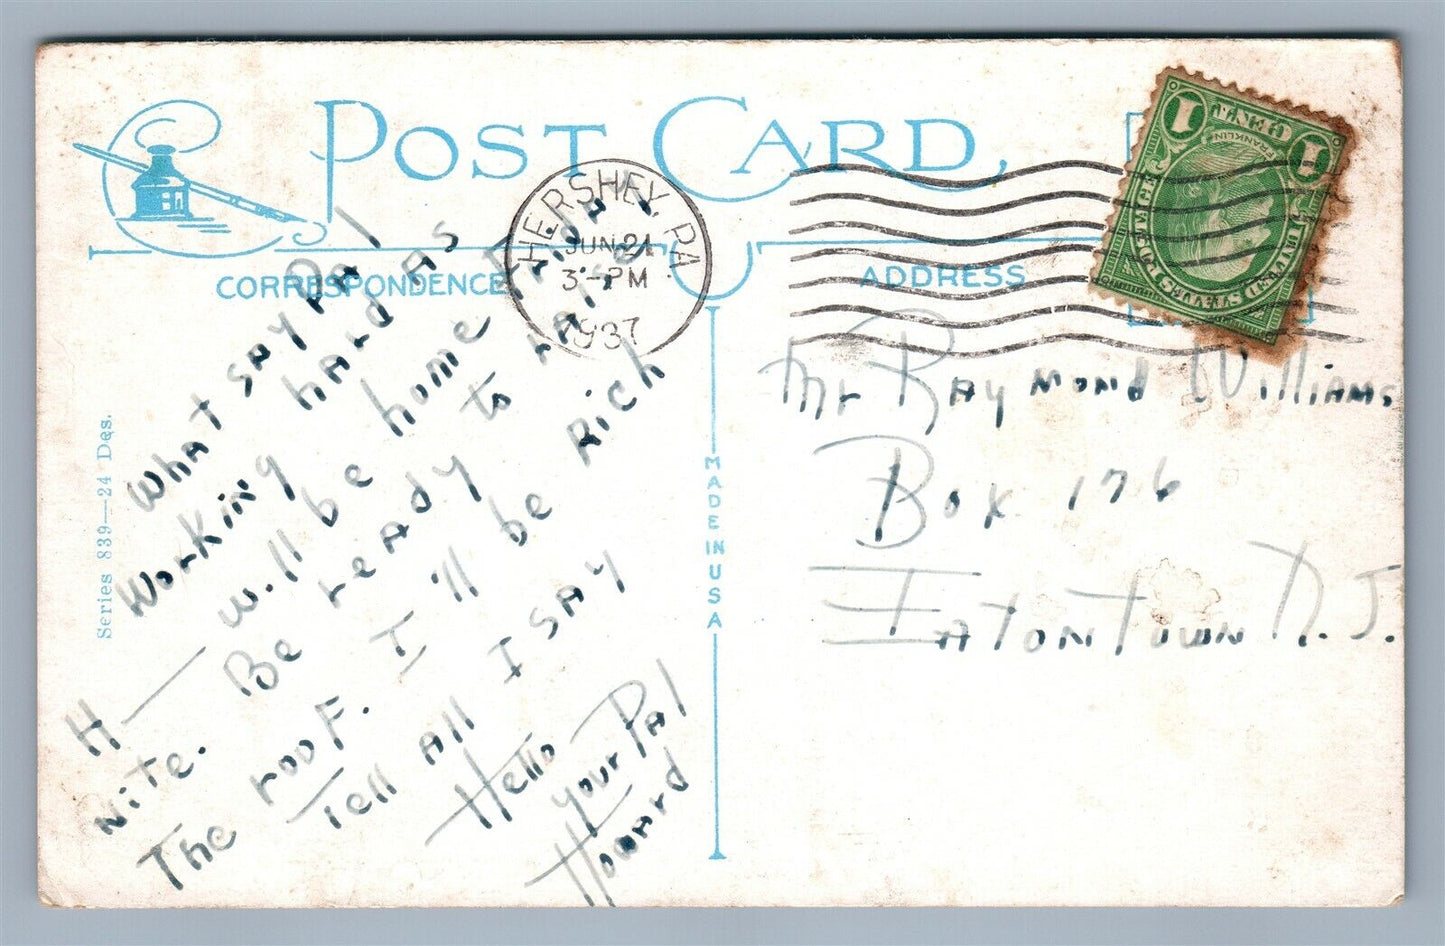 POST CARD
CORRESPONDENCE
ADDRESS
HERSHEY, PA.
JUN 21
3 - PM
1937
1 CENT 1
FRANKLIN
UNITED STATES POSTAGE
What say Pal
Working hard as
H— will be home Friday
Nite. Be ready to raise
The roof. I'll be Rich
Tell All I say
Hello
your Pal
Howard
Series 839—24 Des.
MADE IN USA
Mr Raymond Williams
Box 176
Eatontown N. J.